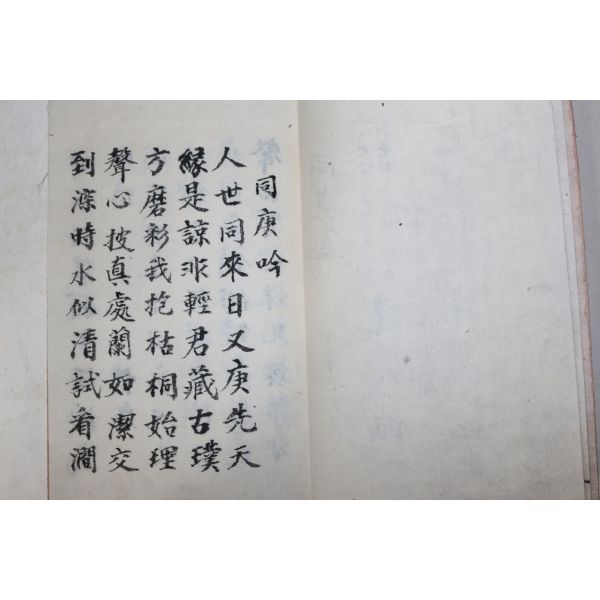 同庚吟
人世同來日又庚先天
緣是諒非輕君藏古璞
方磨彩我抱枯桐始理
聲心披真處蘭如潔交
到深時水似清試看澗